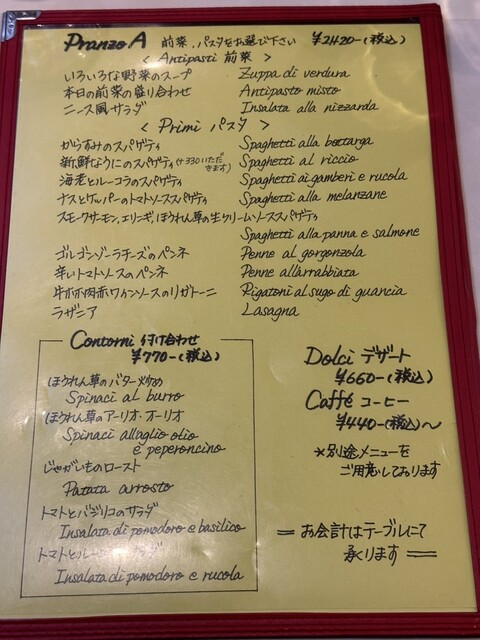 Pranzo A 前菜、パスタをお選び下さい ¥2420-(税込)
< Antipasti 前菜 >
いろいろな野菜のスープ Zuppa di verdura
本日の前菜の盛り合わせ Antipasto misto
ニース風サラダ Insalata alla nizzarda
< Primi パスタ >
からすみのスパゲティ Spaghetti alla bottarga
新鮮なうにのスパゲティ(+330いただきます) Spaghetti al riccio
海老とルーコラのスパゲティ Spaghetti ai gamberi e rucola
ナスとケッパーのトマトソーススパゲティ Spaghetti alla melanzane
スモークサーモン、エリンギ、ほうれん草の生クリームソーススパゲティ
Spaghetti alla panna e salmone
ゴルゴンゾーラチーズのペンネ Penne al gorgonzola
辛いトマトソースのペンネ Penne all'arrabbiata
牛ホホ肉赤ワインソースのリガトーニ Rigatoni al sugo di guancia
ラザニア Lasagna
Contorni 付け合わせ
¥770-(税込)
ほうれん草のバター炒め
Spinaci al burro
ほうれん草のアーリオ・オーリオ
Spinaci all'aglio olio
e peperoncino
じゃがいものロースト
Patata arrosto
トマトとバジリコのサラダ
Insalata di pomodoro e basilico
トマトとルー
Insalata di pomodoro e rucola
Dolci デザート
¥660-(税込)
Caffé コーヒー
¥440-(税込)~
*別途メニューを
ご用意しております
= お会計はテーブルにて
承ります =